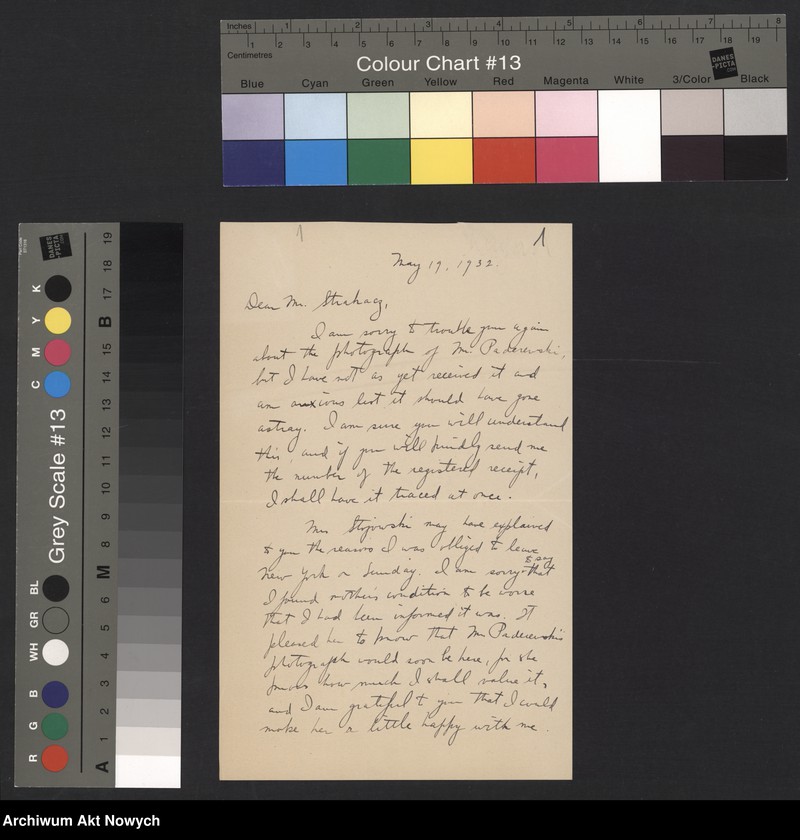 Inches 1 2 3 4 5 6 7 8
1 2 3 4 5 6 7 8 9 10 11 12 13 14 15 16 17 18 19
Centimetres
Colour Chart #13
DANES-PICTA.COM
Blue Cyan Green Yellow Red Magenta White 3/Color Black
Grey Scale #13
DANES-PICTA.COM
C M Y K
R G B WH GR BL
A 1 2 3 4 5 6 M 8 9 10 11 12 13 14 15 B 17 18 19
1 1
May 19, 1932.
Dear Mr. Strakacz,
I am sorry to trouble you again
about the photograph of Mr. Paderewski,
but I have not as yet received it and
am anxious lest it should have gone
astray. I am sure you will understand
this and if you will kindly send me
the number of the registered receipt,
I shall have it traced at once.
Mr. Stojowski may have explained
to you the reasons I was obliged to leave
New York on Sunday. I am sorry to say that
I found mother's condition to be worse
that I had been informed it was. It
pleased her to know that Mr. Paderewski's
photograph would soon be here, for she
knows how much I shall value it,
and I am grateful to you that I could
make her a little happy with me.
Archiwum Akt Nowych